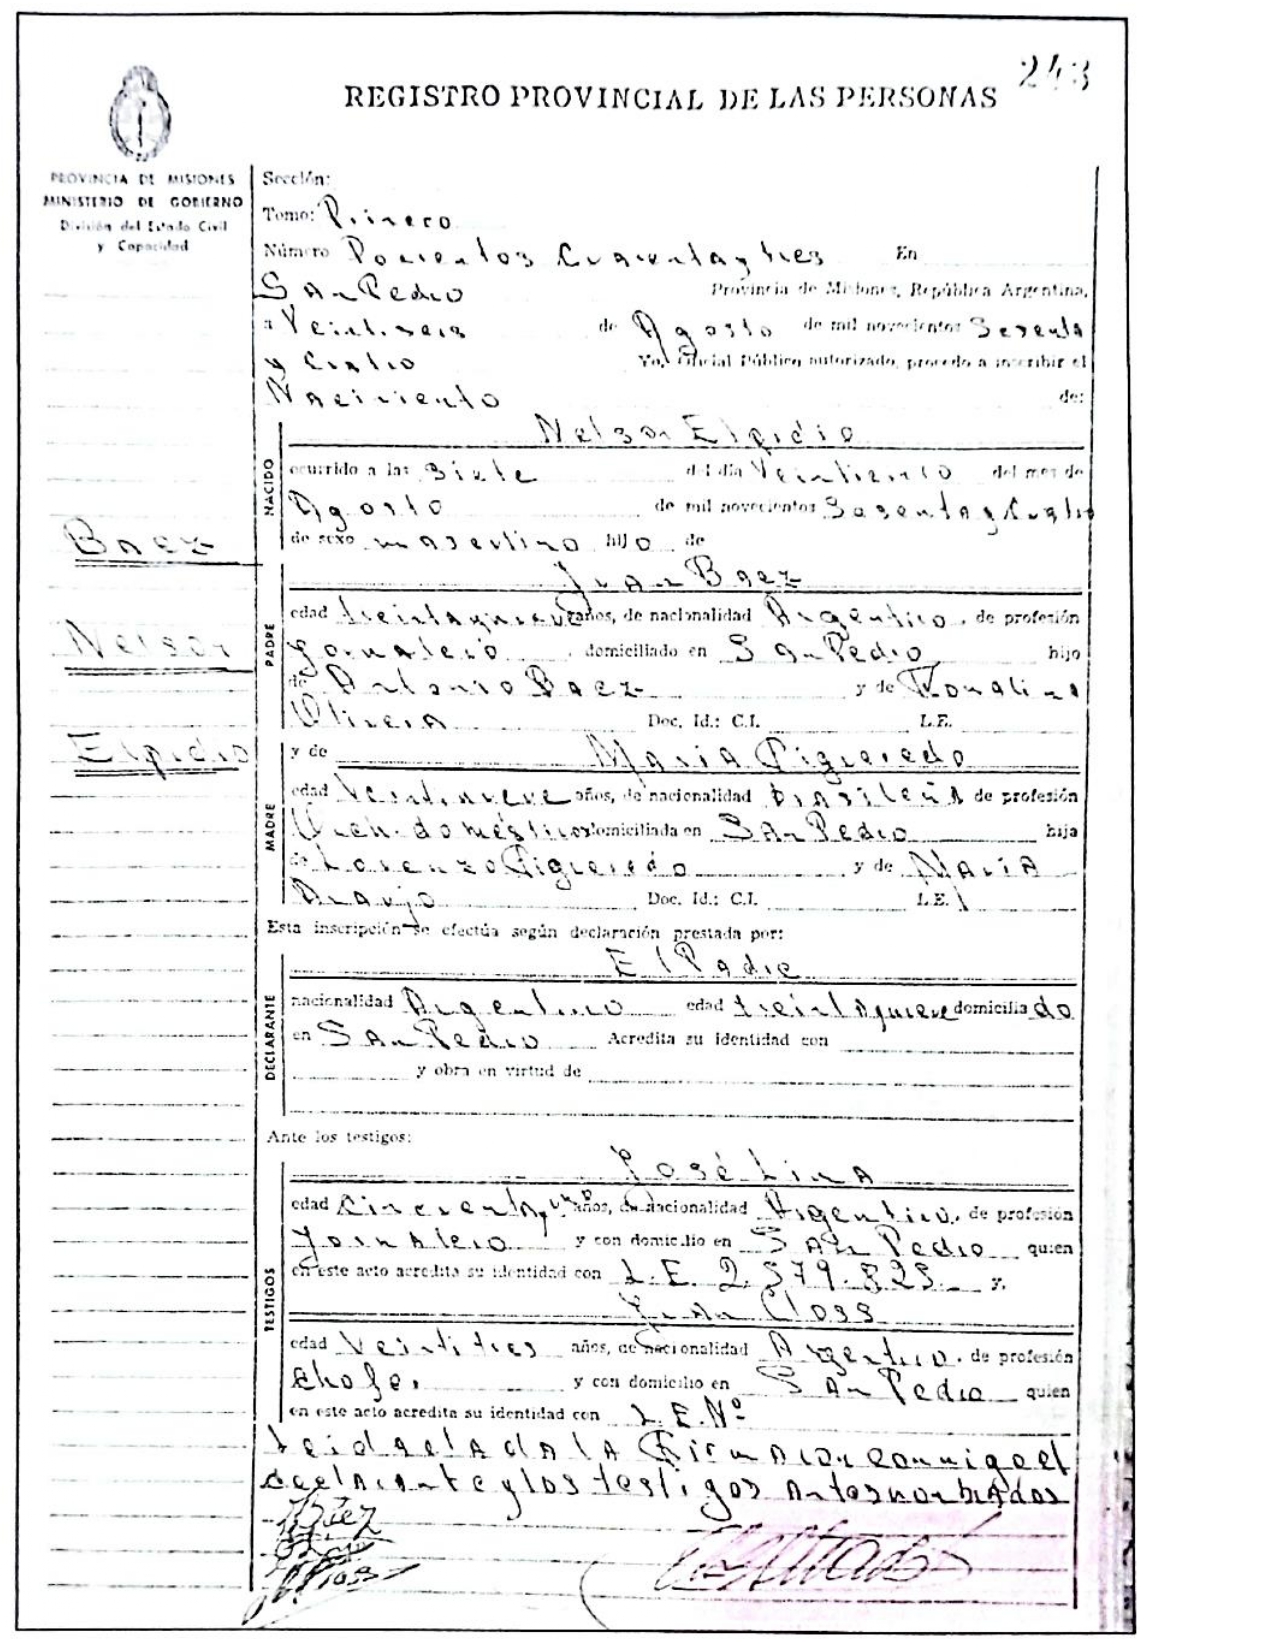 243
REGISTRO PROVINCIAL DE LAS PERSONAS
PROVINCIA DE MISIONES
MINISTERIO DE GOBIERNO
División del Estado Civil
y Capacidad
Sección:
Tomo: Primero
Número Docientos Cuarentaytres En
San Pedro Provincia de Misiones, República Argentina,
a Veintiseis de Agosto de mil novecientos Sesenta
y Cuatro Yo, Oficial Público autorizado, procedo a inscribir el
Nacimiento de:
NACIDO
Nelson Elpidio
ocurrido a las Siete del día del mes de
Agosto de mil novecientos Sesenta y Cuatro
de sexo masculino hijo de
Baez
Nelson
Elpidio
PADRE
Juan Baez
edad treintaynueve años, de nacionalidad Argentino, de profesión
Jornalero, domiciliado en San Pedro hijo
de Antonio Baez y de
Olivera Doc. Id.: C.I. L.E.
y de Maria Figueredo
MADRE
edad Veintinueve años, de nacionalidad brasileña de profesión
Queh. domésticos domiciliada en San Pedro hija
de Lorenzo Figueredo y de Maria
Araujo Doc. Id.: C.I. L.E.
Esta inscripción se efectúa según declaración prestada por:
El Padre
DECLARANTE
nacionalidad Argentino edad treintaynueve domiciliado
en San Pedro Acredita su identidad con
y obra en virtud de
Ante los testigos:
TESTIGOS
José Lima
edad Cincuentayun años, de nacionalidad Argentino, de profesión
Jornalero y con domicilio en San Pedro quien
en este acto acredita su identidad con L.E. 2.579.823 y,
Juan Closs
edad Veintitres años, de nacionalidad Argentino, de profesión
Chofer y con domicilio en San Pedro quien
en este acto acredita su identidad con L.E.Nº
Leida el acta la Firman con conmigo el
declarante y los testigos antesnombrados
JBáez